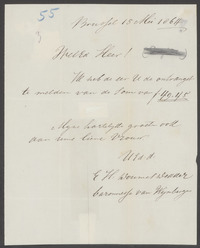 55
Brussel 15 Mei 1864
Waarde Heer!
Ik heb de eer U de ontvangst
te melden van de Som van f 40.45
Mijn hartelijke groete ook
aan uwe lieve Vrouw
E H Douwes Dekker
baronesse van Wijnbergen